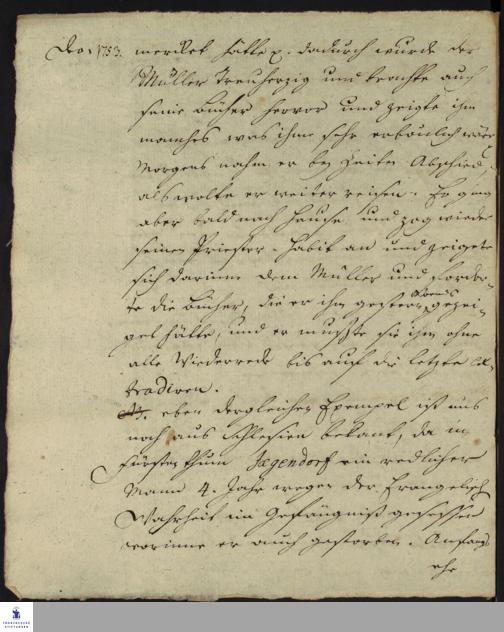 Dec. 1753. mercket hatte p. dadurch wurde der
Müller treuherzig und brachte auch
seine Bücher hervor und zeigte ihm
manches was ihm sehr erbaulich wäre
Morgens nahm er bey Zeiten Abschied,
als wolte er weiter reisen. Er ging
aber bald nach Hause und zog wieder
seinen Priester-Habit an und zeigete
sich darinne dem Müller und forder-
te die Bücher, die er ihm gestern Abends gezei-
get hätte, und er mußte sie ihm ohne
alle Wiederrede bis auf die letzte ex-
tradiren.
eben dergleichen Exempel ist uns
noch aus Schlesien bekant, da im
Fürstenthum Jægendorf ein redlicher
Mann 4. Jahr wegen der Evangelisch
Wahrheit im Gefängniß gesessen
worinne er auch gestorben. Anfangs
ehe
FRANCKESCHE
STIFTUNGEN